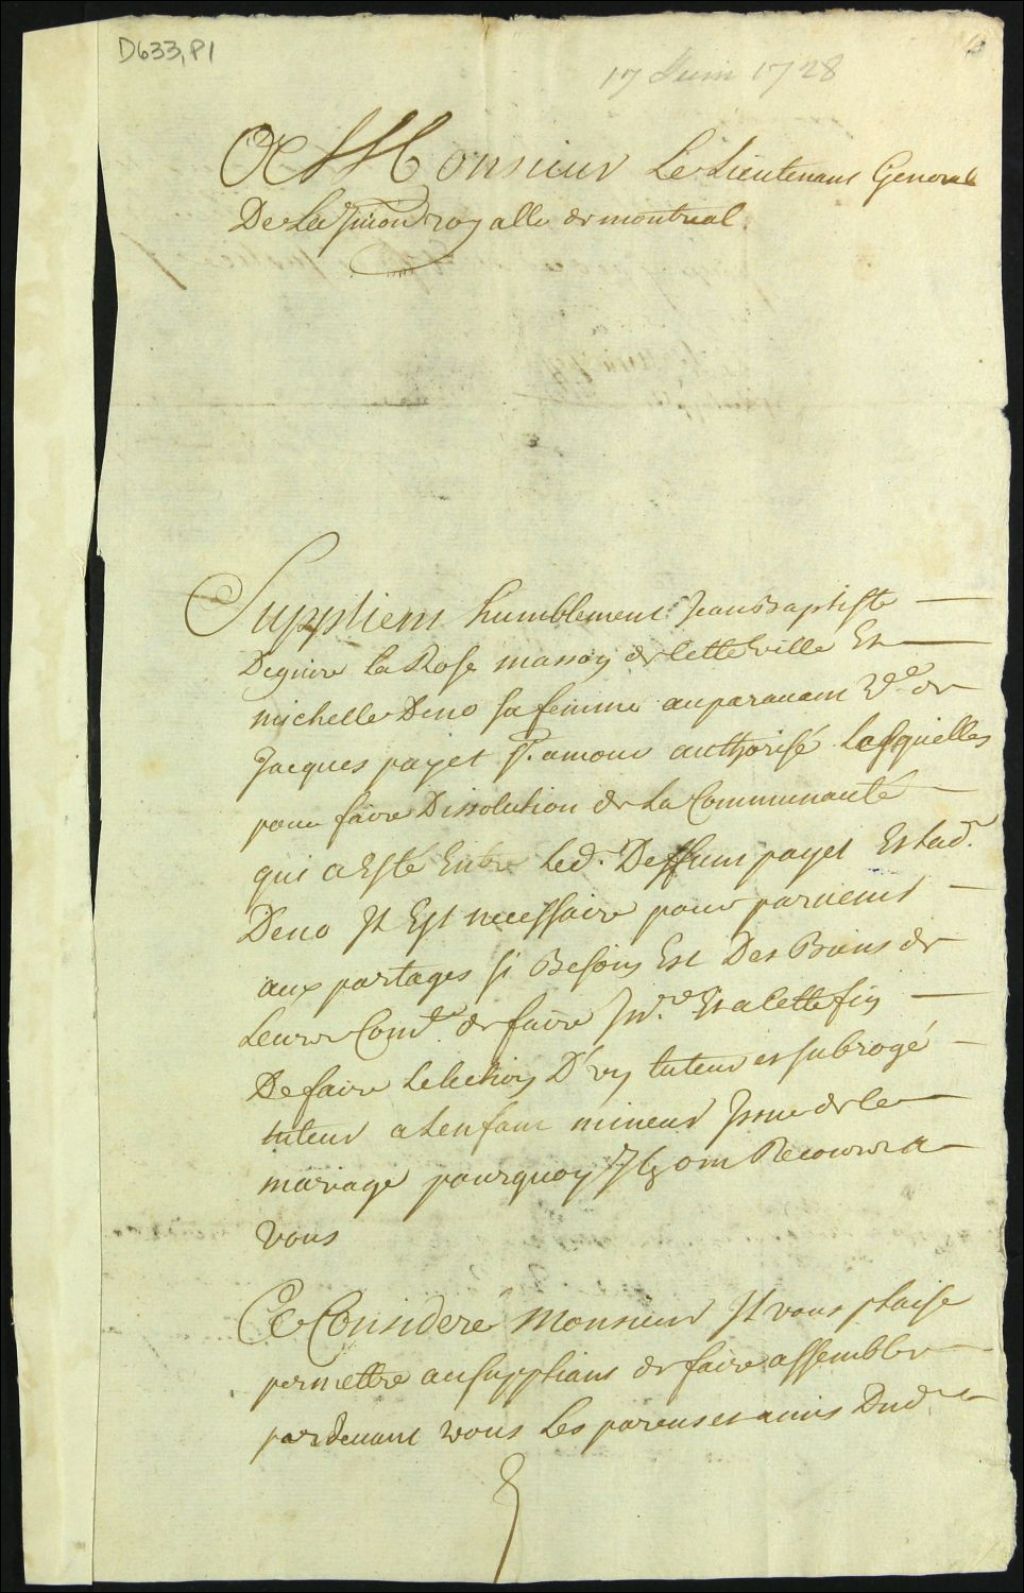 D633, P1
17 Juin 1728
A Monsieur Le Lieutenant General
De La Jurion royalle de montreal
Supplient humblement Jean Baptiste
Deguire La Rose masson de Cette ville Et
michelle Deno sa femme auparauant Ve. de
Jacques payet St. amour authorisé Lesquelles
pour faire Dissolution de La Communauté
qui a Esté Entre Led. Deffunt payet Et Lad.
Deno Il Est necessaire pour paruenir
aux partages si Besoin Est Des Biens de
Leur Comté. de faire Inre. Et a Cette fin
De faire Lelection D'un tuteur et subrogé
tuteur a Lenfant mineur Issue de Ce
mariage pourquoy Ils ont Recours a
vous
Ce Consideré Monsieur Il vous plaise
permettre au suppliant de faire assembler
pardeuant vous Les parens et amis Dud.